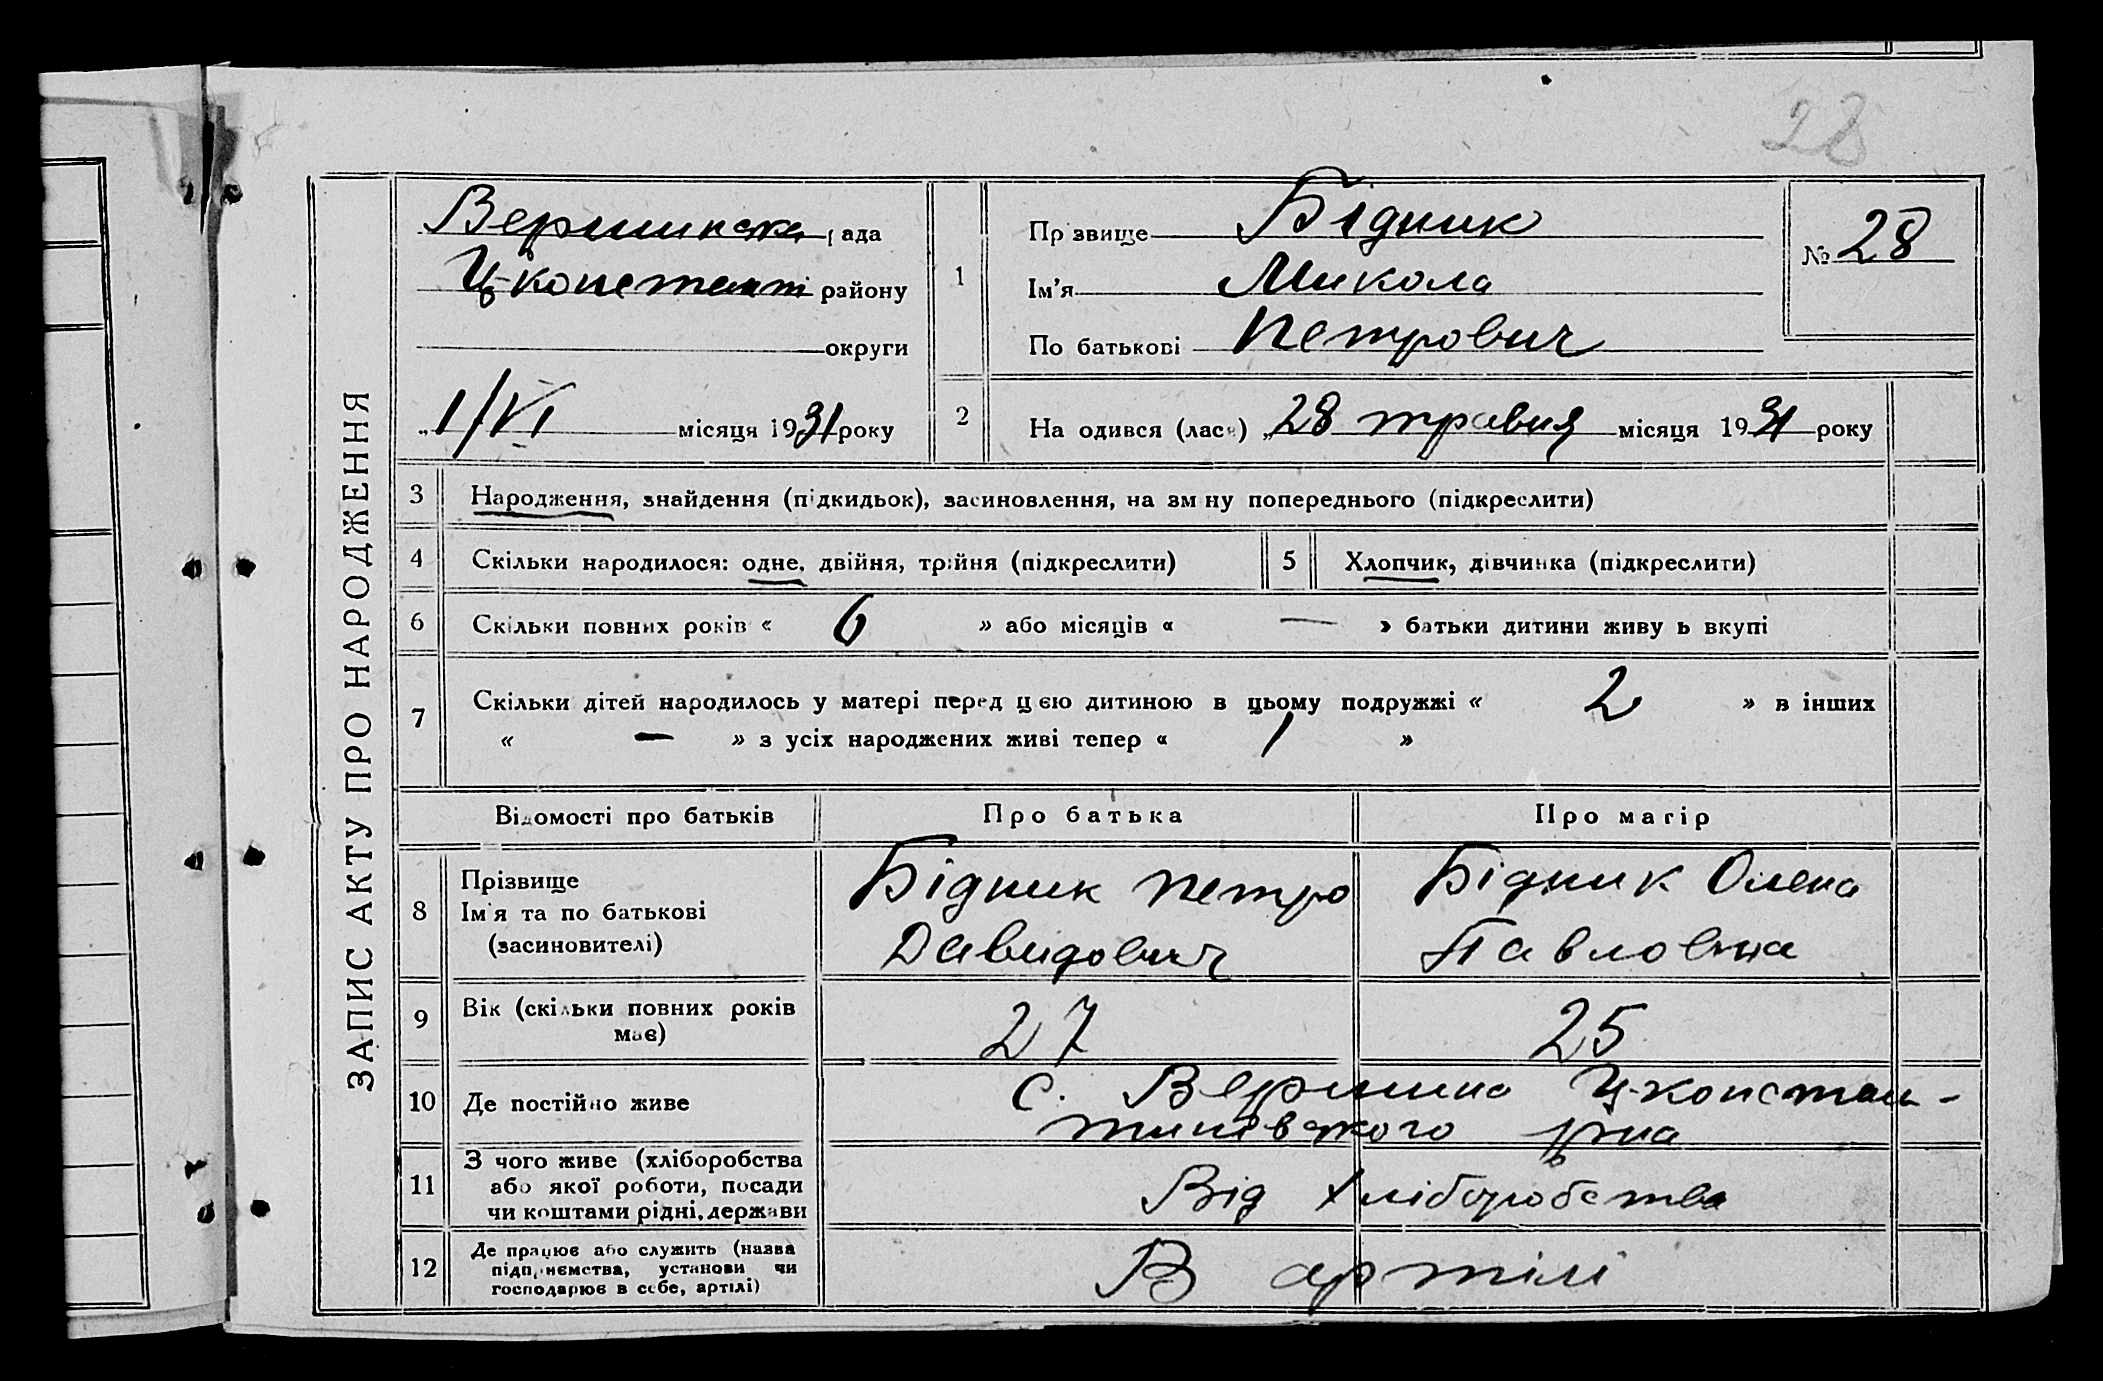 28
ЗАПИС АКТУ ПРО НАРОДЖЕННЯ
Вершинська рада
Ц-констант району
округи
„1/VI місяця 1931 року
1
Прізвище Бідник
Ім'я Микола
По батькові Петрович
№ 28
2
На одився (лася) „28 травня місяця 1931 року
3 Народження, знайдення (підкидьок), засиновлення, на зм ну попереднього (підкреслити)
4 Скільки народилося: одне, двійня, трійня (підкреслити) 5 Хлопчик, дівчинка (підкреслити)
6 Скільки повних років « 6 » або місяців « — » батьки дитини живу ь вкупі
7 Скільки дітей народилось у матері перед цією дитиною в цьому подружжі « 2 » в інших
« — » з усіх народжених живі тепер « 1 »
Відомості про батьків Про батька Про матір
8 Прізвище
Ім'я та по батькові
(засиновителі)
Бідник Петро
Давидович
Бідник Олена
Павловна
9 Вік (скільки повних років
має)
27 25
10 Де постійно живе
с. Вершина Ц-констан-
тинівського р-на
11 З чого живе (хліборобства
або якої роботи, посади
чи коштами рідні, держави
Від хліборобства
12 Де працює або служить (назва
підприємства, установи чи
господарює в себе, артілі)
В артілі